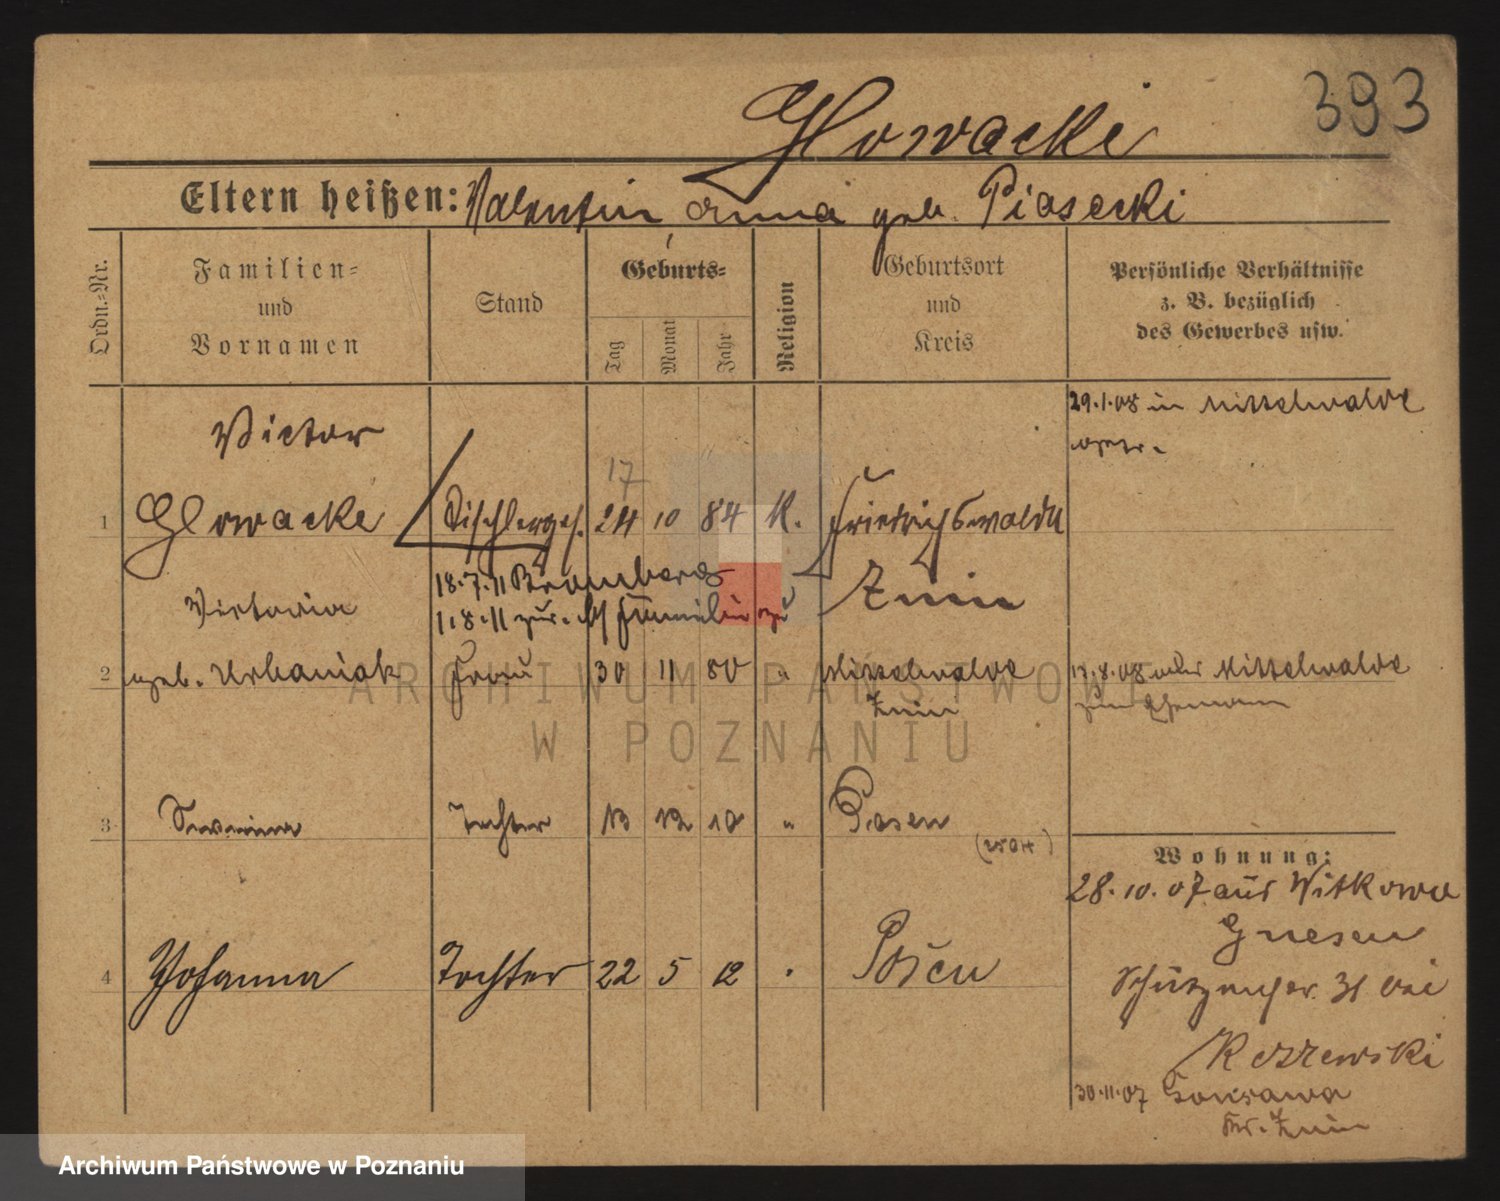 393
Glowacki
Eltern heißen: Valentin Anna geb. Piasecki
Ordn.=Nr.
Familien=
und
Vornamen
Stand
Geburts=
Tag
Monat
Jahr
Religion
Geburtsort
und
Kreis
Persönliche Verhältnisse
z. B. bezüglich
des Gewerbes usw.
29.1.08 in Mittelwalde
Victor
17
1 Glowacki Tischlerges. 24 10 84 K. Friedrichswalde
Znin
18.7.11 Bromberg
1.8.11 zur. Familie zu
Victoria
2 geb. Urbaniak Frau 30 11 80 " Mittelwalde
Znin
17.8.08 aus Mittelwalde
zum Ehemann
3 Tochter 13 12 10 " Posen
4 Johanna Tochter 22 5 12 " Posen
Wohnung:
28.10.07 aus Witkowo
Gnesen
Schützenstr. 31 bei
30.11.07
Kr. Znin
ARCHIWUM PAŃSTWOWE
W POZNANIU
Archiwum Państwowe w Poznaniu